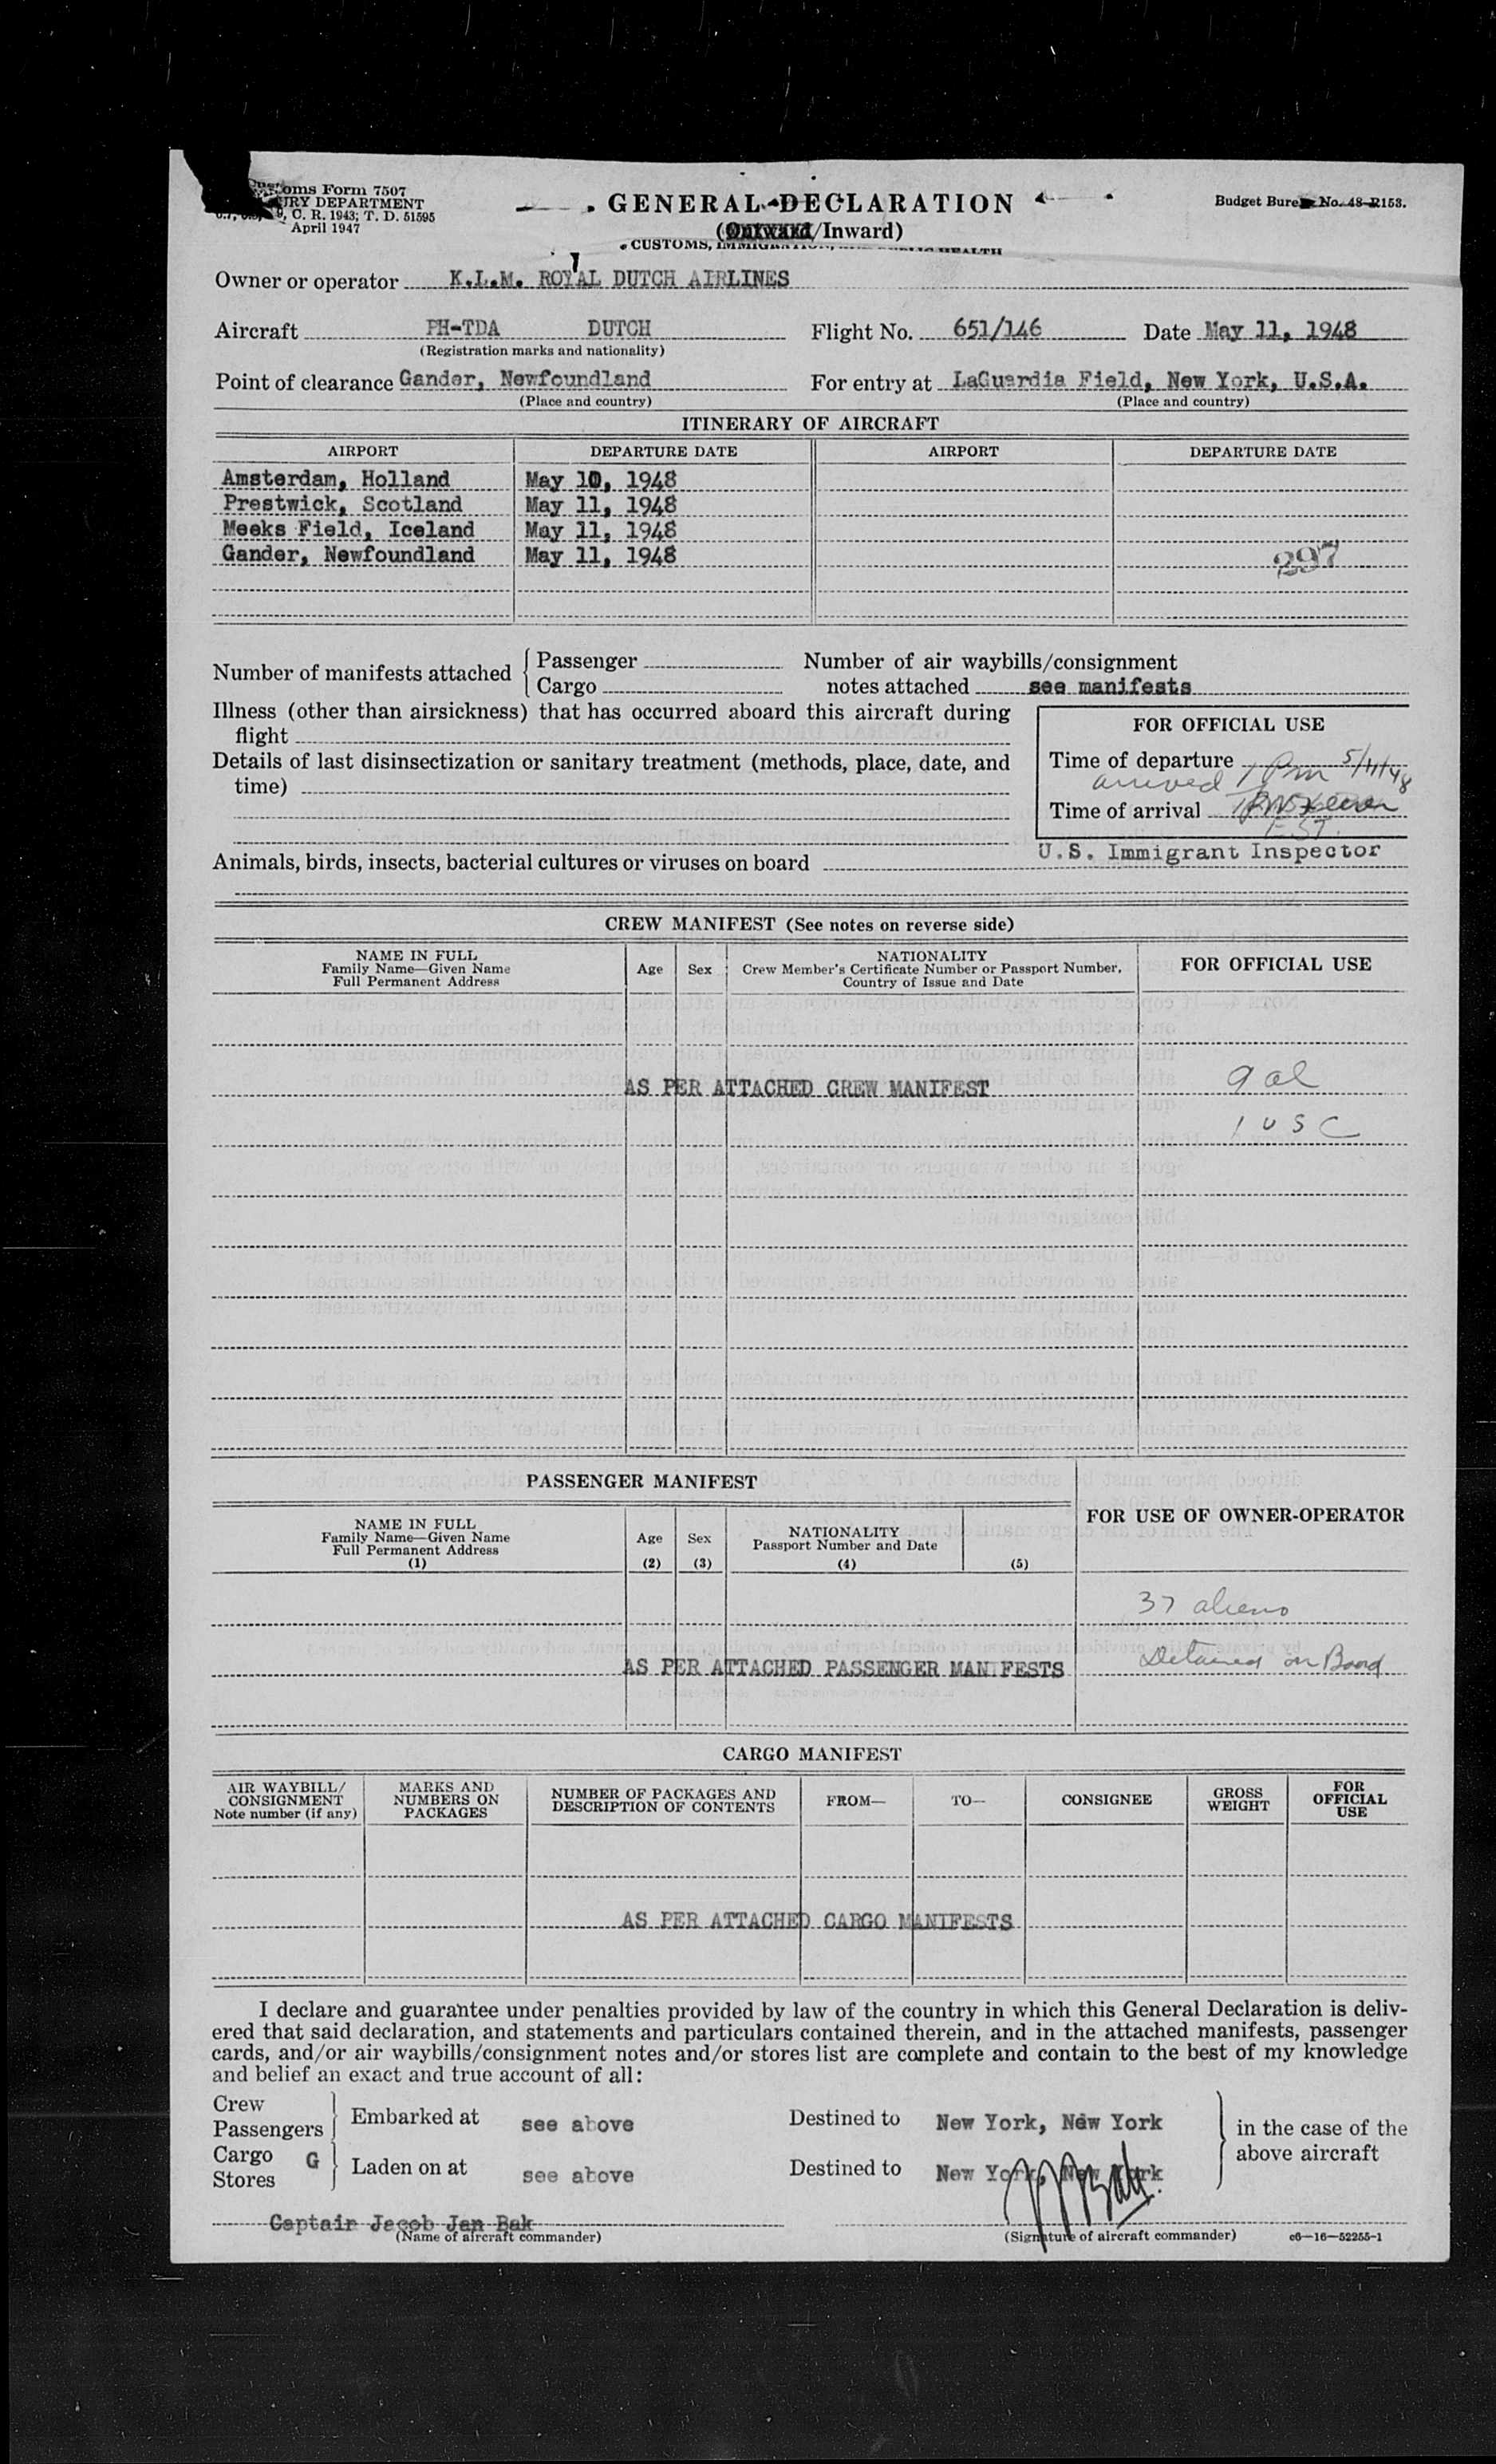 oms Form 7507
URY DEPARTMENT
C. R. 1943; T. D. 51595
April 1947
GENERAL DECLARATION
(Outward/Inward)
CUSTOMS, IMMIGRATION, PUBLIC HEALTH
Budget Bureau No. 48-R153.
Owner or operator K.L.M. ROYAL DUTCH AIRLINES
Aircraft PH-TDA DUTCH Flight No. 651/146 Date May 11, 1948
(Registration marks and nationality)
Point of clearance Gander, Newfoundland For entry at LaGuardia Field, New York, U.S.A.
(Place and country) (Place and country)
ITINERARY OF AIRCRAFT
AIRPORT DEPARTURE DATE AIRPORT DEPARTURE DATE
Amsterdam, Holland May 10, 1948
Prestwick, Scotland May 11, 1948
Meeks Field, Iceland May 11, 1948
Gander, Newfoundland May 11, 1948 297
Number of manifests attached { Passenger Number of air waybills/consignment
Cargo notes attached see manifests
Illness (other than airsickness) that has occurred aboard this aircraft during
flight
FOR OFFICIAL USE
Details of last disinsectization or sanitary treatment (methods, place, date, and
time)
Time of departure 1 Pm 5/11/48
arrived
Time of arrival
EST.
U.S. Immigrant Inspector
Animals, birds, insects, bacterial cultures or viruses on board
CREW MANIFEST (See notes on reverse side)
NAME IN FULL
Family Name—Given Name
Full Permanent Address
Age Sex
NATIONALITY
Crew Member's Certificate Number or Passport Number,
Country of Issue and Date
FOR OFFICIAL USE
AS PER ATTACHED CREW MANIFEST 9 al
1 USC
PASSENGER MANIFEST
FOR USE OF OWNER-OPERATOR
NAME IN FULL
Family Name—Given Name
Full Permanent Address
(1)
Age
(2)
Sex
(3)
NATIONALITY
Passport Number and Date
(4)
(5)
37 aliens
AS PER ATTACHED PASSENGER MANIFESTS Detained on Board
CARGO MANIFEST
AIR WAYBILL/
CONSIGNMENT
Note number (if any)
MARKS AND
NUMBERS ON
PACKAGES
NUMBER OF PACKAGES AND
DESCRIPTION OF CONTENTS
FROM— TO— CONSIGNEE
GROSS
WEIGHT
FOR
OFFICIAL
USE
AS PER ATTACHED CARGO MANIFESTS
I declare and guarantee under penalties provided by law of the country in which this General Declaration is deliv-
ered that said declaration, and statements and particulars contained therein, and in the attached manifests, passenger
cards, and/or air waybills/consignment notes and/or stores list are complete and contain to the best of my knowledge
and belief an exact and true account of all:
Crew
Passengers } Embarked at see above Destined to New York, New York
Cargo G
Stores } Laden on at see above Destined to New York, New York
} in the case of the
above aircraft
Captain Jacob Jan Bak
(Name of aircraft commander)
J J Bak.
(Signature of aircraft commander) c6—16—52255-1